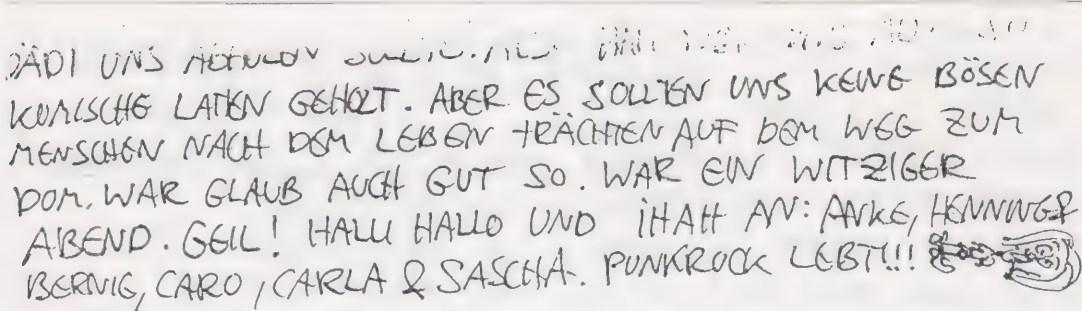 UNS
KOMISCHE LATTEN GEHOLT. ABER ES SOLLTEN UNS KEINE BÖSEN
MENSCHEN NACH DEM LEBEN TRÄCHTEN AUF DEM WEG ZUM
DOM. WAR GLAUB AUCH GUT SO. WAR EIN WITZIGER
ABEND. GEIL! HALLI HALLO UND IHAH AN: ANKE, HENNINGER
BERNIE, CARO, CARLA & SASCHA. PUNKROCK LEBT!!!